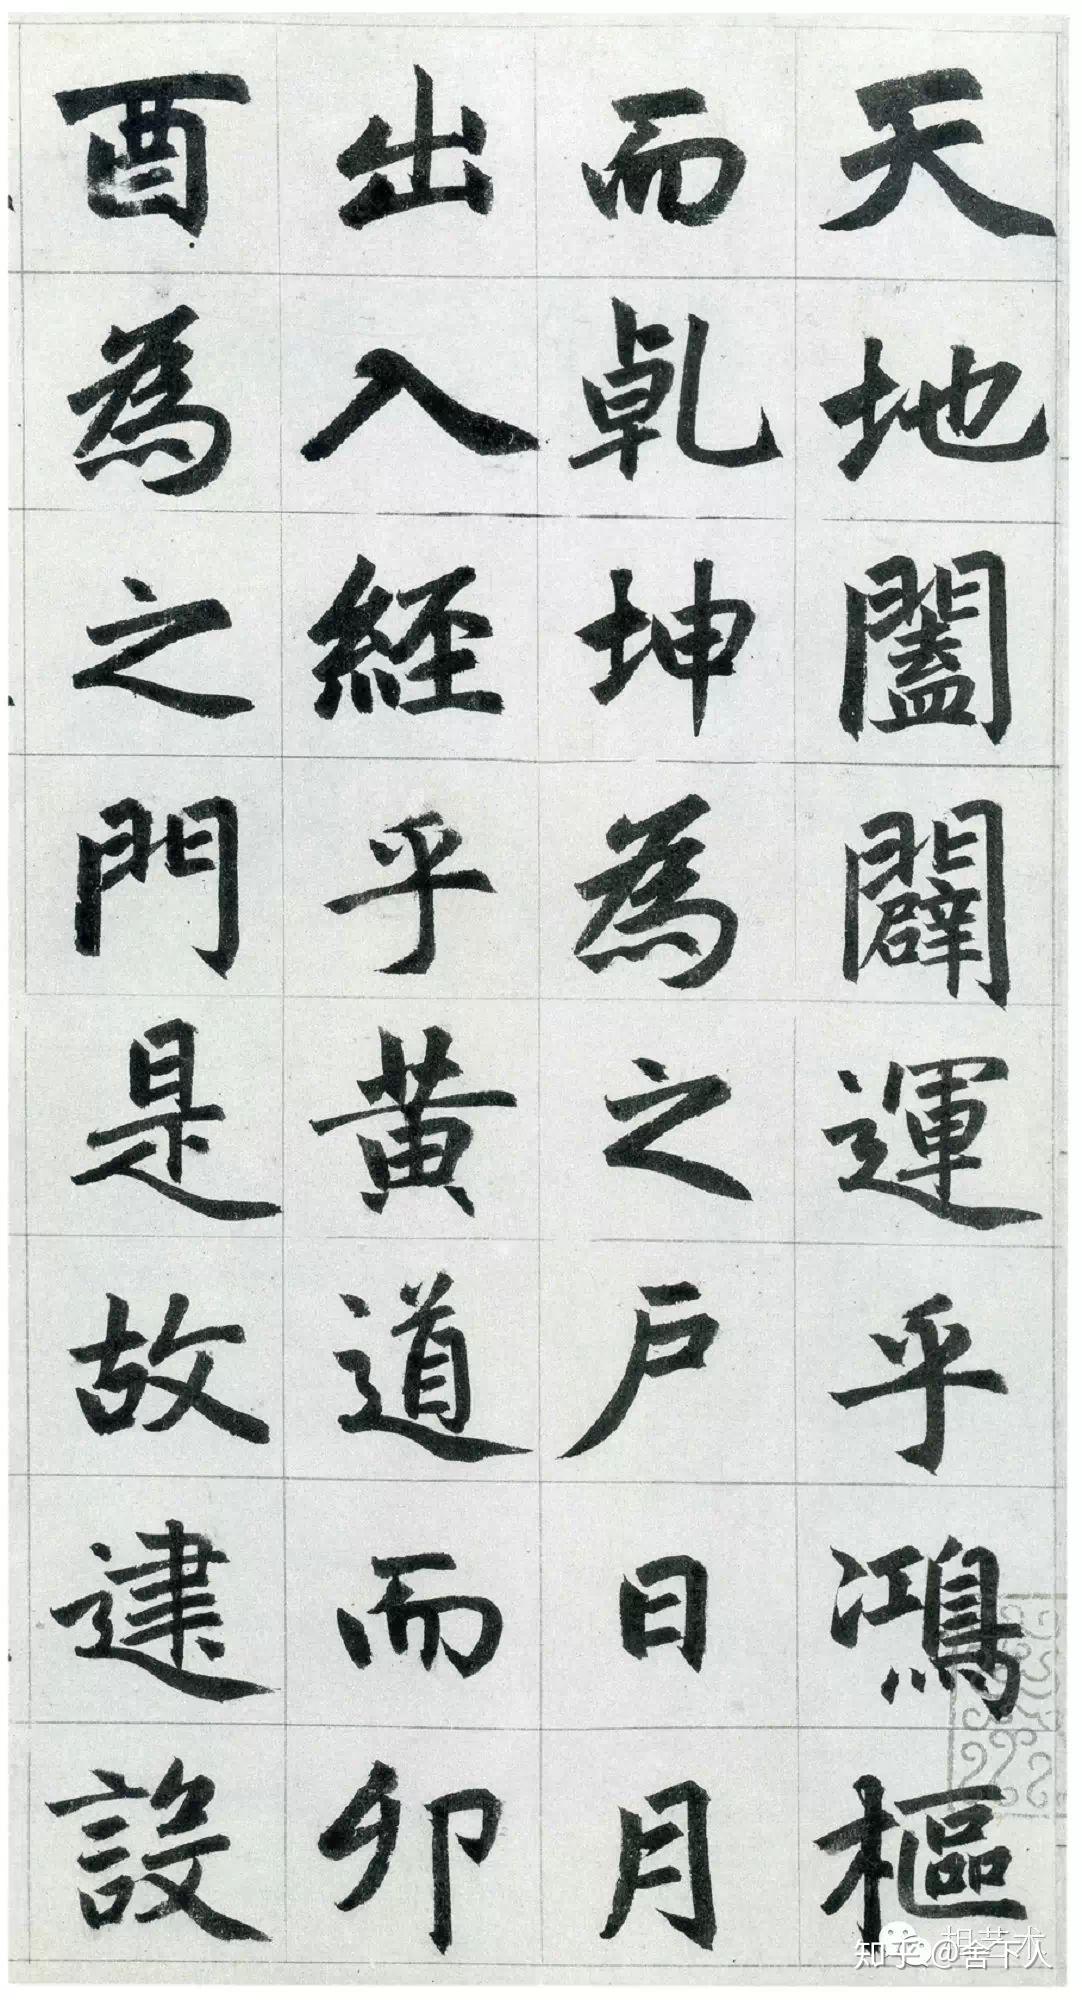 天地闔闢運乎鴻樞
而乾坤為之戶日月
出入經乎黃道而卯
酉為之門是故建設
知乎 @舍下人